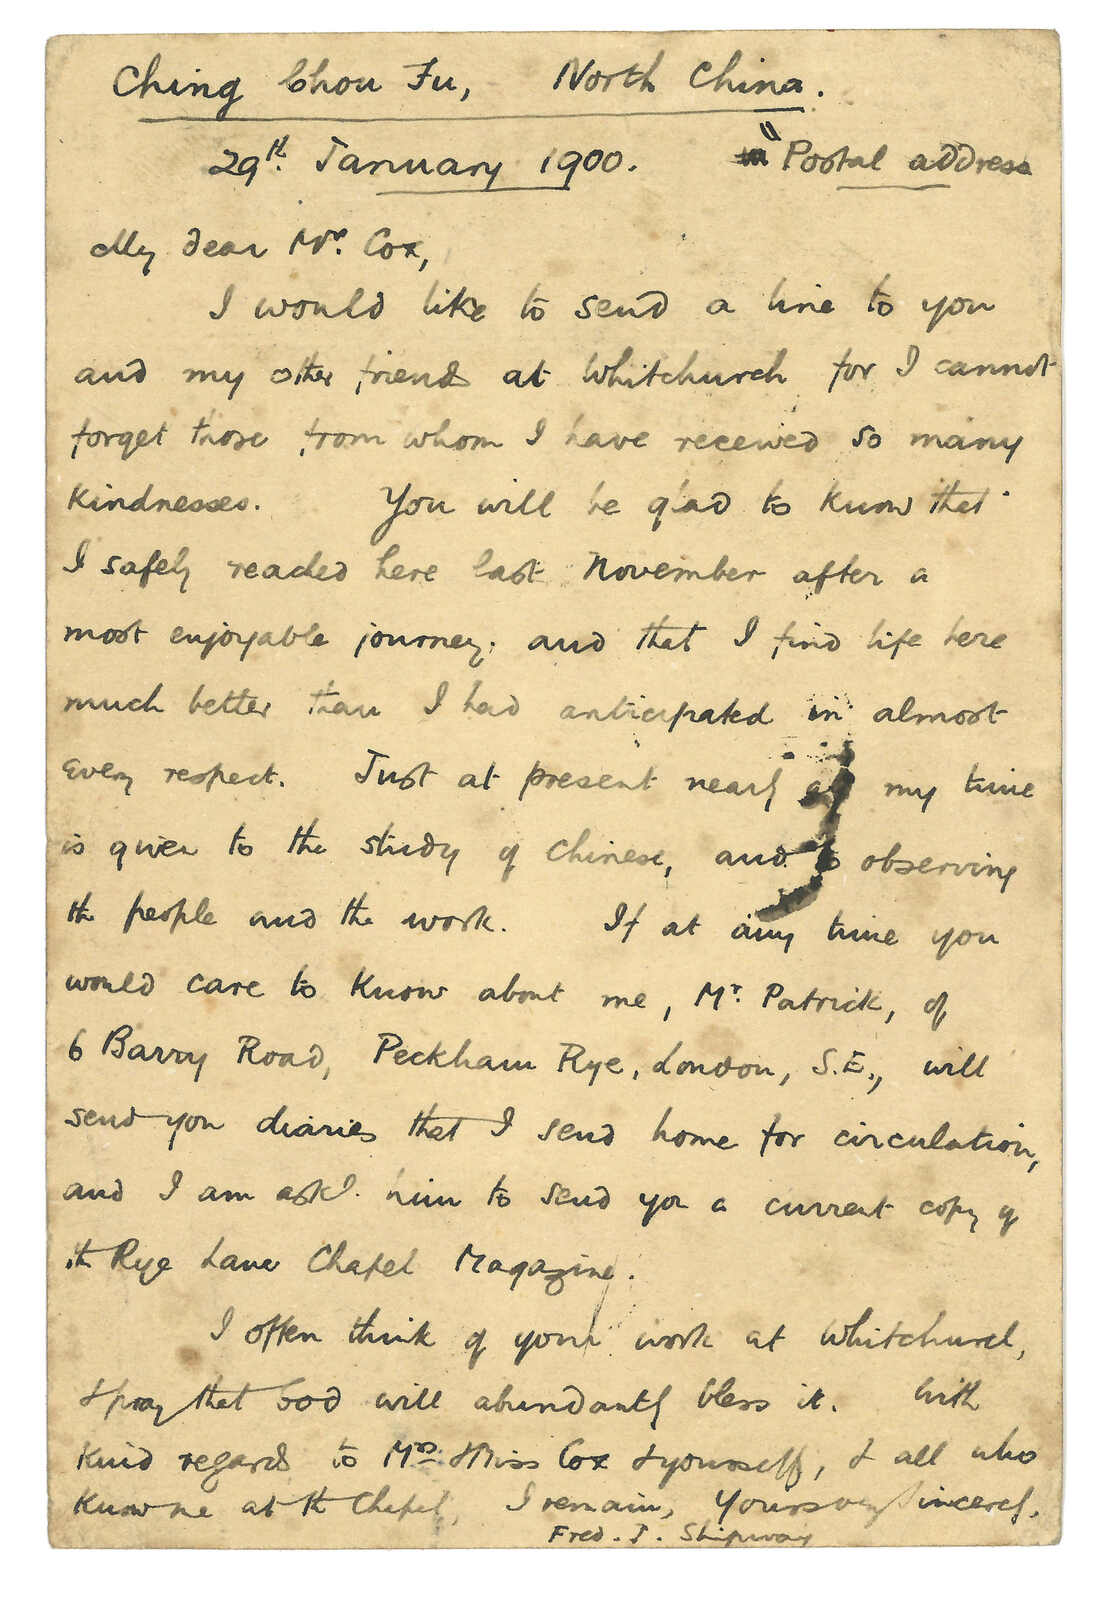 Ching Chou Fu, North China.
29th. January 1900. " Postal address
My dear Mr. Cox,
I would like to send a line to you
and my other friends at Whitchurch for I cannot
forget those from whom I have received so many
kindnesses. You will be glad to know that
I safely reached here last November after a
most enjoyable journey; and that I find life here
much better than I had anticipated in almost
every respect. Just at present nearly all my time
is given to the study of Chinese, and to observing
the people and the work. If at any time you
would care to know about me, Mr. Patrick, of
6 Barry Road, Peckham Rye, London, S.E., will
send you diaries that I send home for circulation,
and I am askg. him to send you a current copy of
the Rye Lane Chapel Magazine.
I often think of your work at Whitchurch,
& pray that God will abundantly bless it. With
kind regards to Mrs & Miss Cox & yourself, & all who
know me at the Chapel, I remain, Yours very sincerely,
Fred. J. Shipway